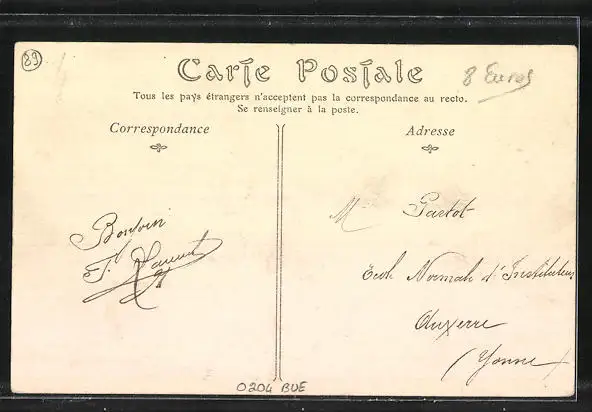 89
Carte Postale
8 Euros
Tous les pays étrangers n'acceptent pas la correspondance au recto.
Se renseigner à la poste.
Correspondance
Adresse
Bonjour
F.
M Partot
Ecole Normale d'Instituteurs
Auxerre
(Yonne)
0204 BUE